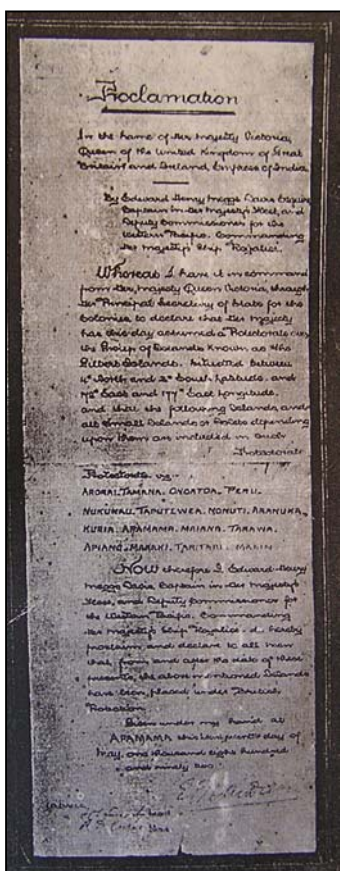 Proclamation
In the name of Her Majesty Victoria,
Queen of the United Kingdom of Great
Britain and Ireland Empress of India
By Edward Henry Meggs Davis Esquire
Captain in Her Majesty's Fleet, and
Deputy Commissioner for the
Western Pacific. Commanding
Her Majesty's Ship "Royalist".
Whereas I have it in command
from Her Majesty Queen Victoria, through
Her Principal Secretary of State for the
Colonies to declare that Her Majesty
has this day assumed a Protectorate over
the Group of Islands known as the
Gilbert Islands. Situated between
4° North and 3° South Latitude. and
172° East and 177° East Longitude,
and that the following Islands, and
all Small Islands or Islets depending
upon them are included in such
Protectorate
Protectorate viz
ARORAI. TAMANA. ONOATOA. PERU.
NUKUNAU. TAPUTEWEA. NONUTI. ARANUKA.
KURIA. APAMAMA. MAIANA. TARAWA.
APIANG. MARAKI. TARITARI. MAKIN
NOW therefore I Edward Henry
Meggs Davis Captain in Her Majesty's
Fleet, and Deputy Commissioner for
the Western Pacific. Commanding
Her Majesty's Ship "Royalist" do hereby
proclaim and declare to all men
that, from and after the date of these
presents, the above mentioned Islands
have been placed under British
Protection
Given under my hand at
APAMAMA this twenty day of
May, one thousand eight hundred
and ninety two.